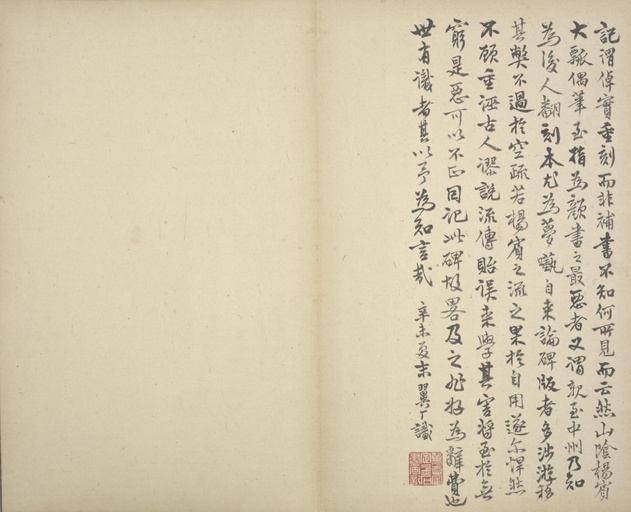 記謂倬實重刻而非補書不知何所見而云然山陰楊賓
大瓢偶筆至指為顏書之最惡者又謂親至中州乃知
為後人翻刻本尤為夢囈自來論碑版者多涉游移
其弊不過於空疏若楊賓之流之果於自用遂爾悍然
不顧重誣古人謬說流傳貽誤來學其害將至於無
窮是惡可以不正因記此碑故畧及之非好為辭費也
世有識者其以予為知言哉
辛未夏末翼丁識